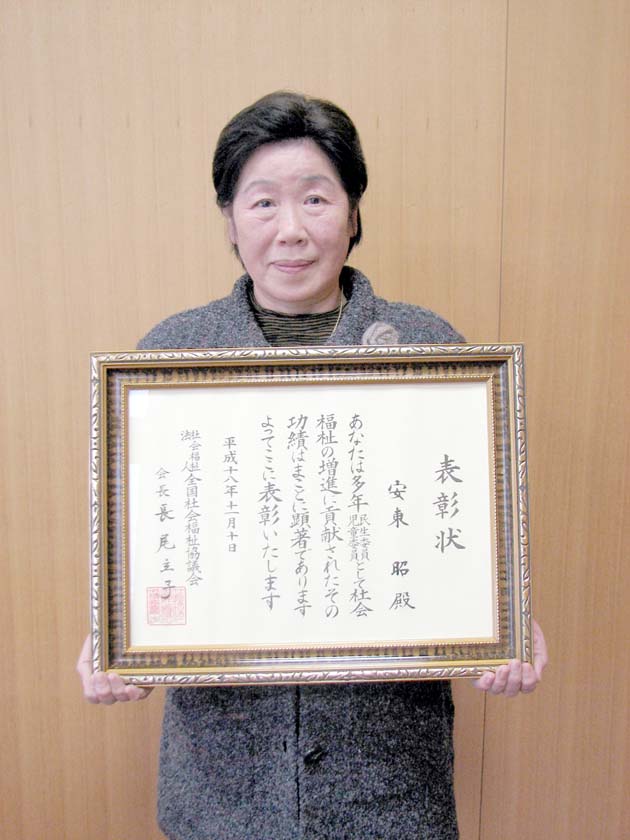 表彰状
安東 昭 殿
あなたは多年民生委員児童委員として社会
福祉の増進に貢献されたその
功績はまことに顕著であります
よってここに表彰いたします
平成十八年十一月十日
社会福祉法人全国社会福祉協議会
会長 長尾立子